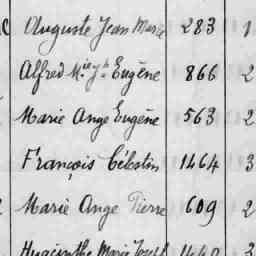 Auguste Jean Marie 283 1
Alfred M.ie J.h Eugène 866 2
Marie Ange Eugène 563 2
François Célestin 1464 3
Marie Ange Pierre 609 2
Hyacinthe Marie Joseph 1440